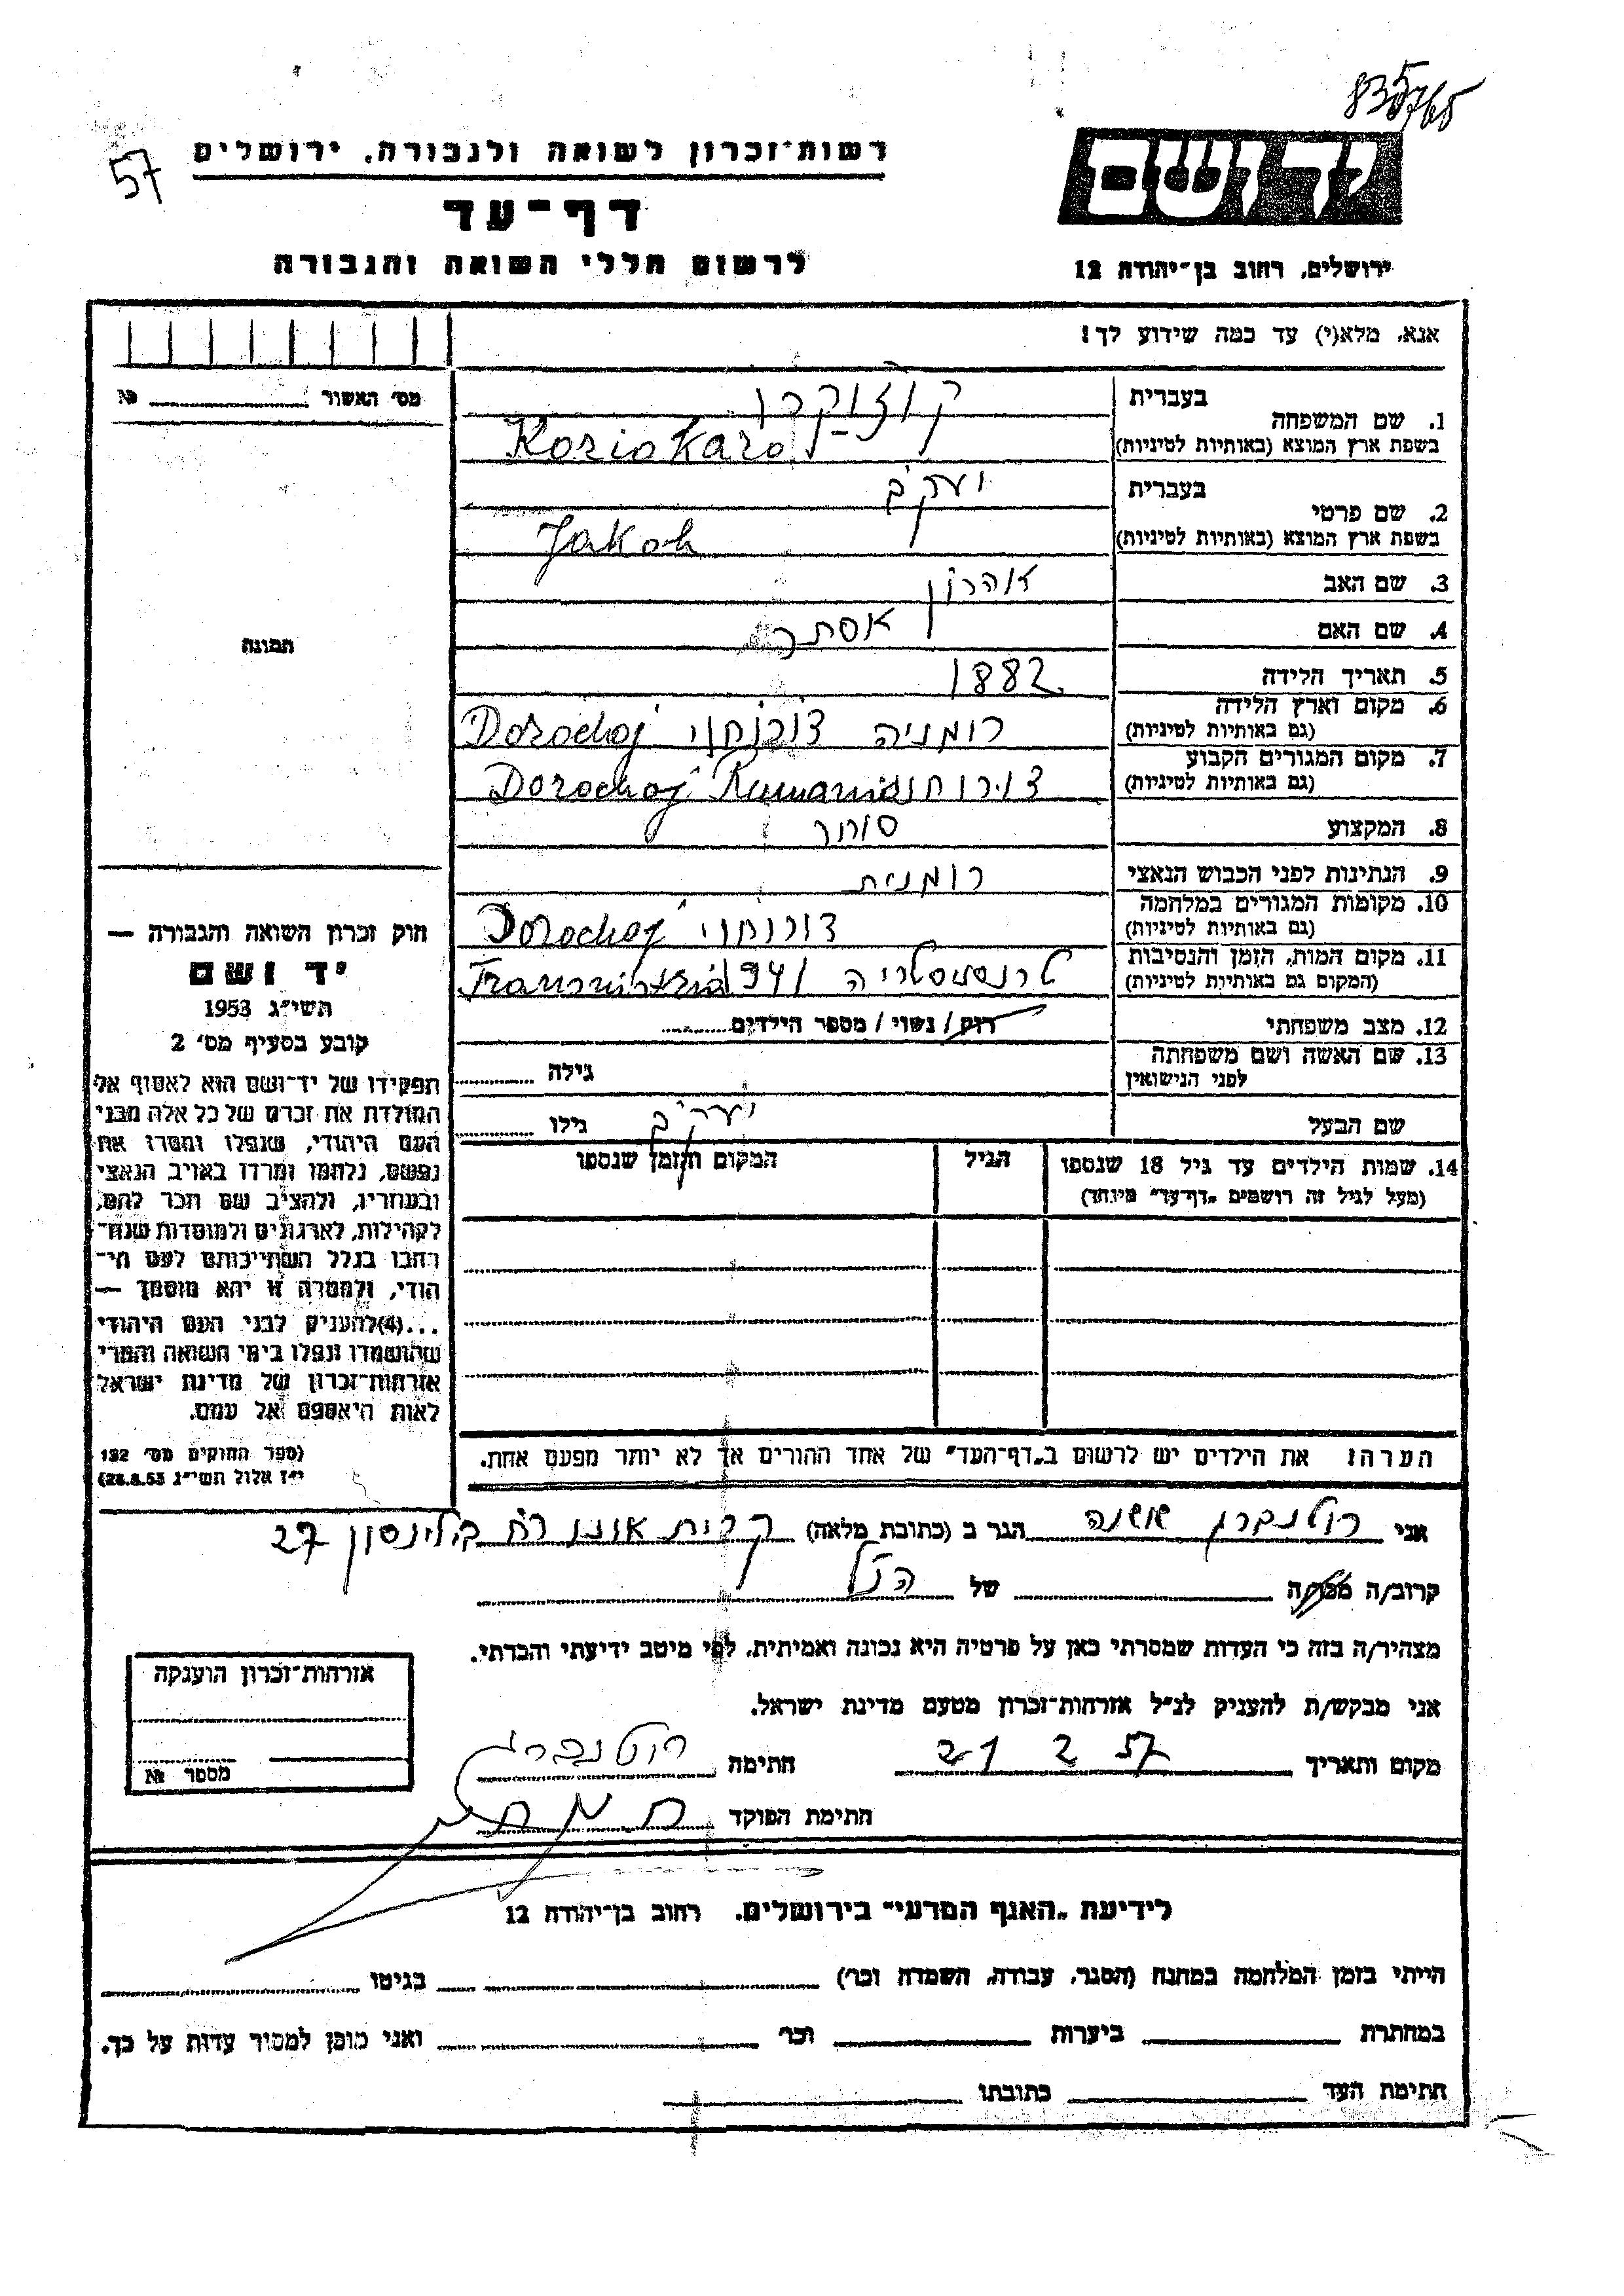 835/765
57
רשות־זכרון לשואה ולגבורה, ירושלים
דף־עד
לרשום חללי השואה והגבורה
יד ושם
ירושלים, רחוב בן־יהודה 12
אנא, מלא(י) עד כמה שידוע לך!
מס׳ האשור № 
תמונה
1. שם המשפחה
בעברית
בשפת ארץ המוצא (באותיות לטיניות)
Koriokaro
2. שם פרטי
בעברית יעקב
בשפת ארץ המוצא (באותיות לטיניות) Jakob
3. שם האב אהרון
4. שם האם אסתר
5. תאריך הלידה 1882
6. מקום וארץ הלידה רומניה דורוחוי Dorochoj
(גם באותיות לטיניות)
7. מקום המגורים הקבוע דורוחוי Dorochoj Rumania
(גם באותיות לטיניות)
8. המקצוע סוחר
9. הנתינות לפני הכבוש הנאצי רומנית
10. מקומות המגורים במלחמה דורוחוי Dorochoj
(גם באותיות לטיניות)
11. מקום המות, הזמן והנסיבות טרנסניסטריה 1941 Transnistria
(המקום גם באותיות לטיניות)
12. מצב משפחתי רוק/ נשוי / מספר הילדים
13. שם האשה ושם משפחתה גילה
לפני הנישואין
שם הבעל יעקב גילו
14. שמות הילדים עד גיל 18 שנספו הגיל המקום והזמן שנספו
(מעל לגיל זה רושמים „דף־עד״ מיוחד)
הערה: את הילדים יש לרשום ב„דף־העד״ של אחד ההורים אך לא יותר מפעם אחת.
חוק זכרון השואה והגבורה —
יד ושם
תשי״ג 1953
קובע בסעיף מס׳ 2
תפקידו של יד־ושם הוא לאסוף אל
המולדת את זכרם של כל אלה מבני
העם היהודי, שנפלו ומסרו את
נפשם, נלחמו ומרדו באויב הנאצי
ובעוזריו, ולהציב שם וזכר להם,
לקהילות, לארגונים ולמוסדות שנח־
רבו בגלל השתייכותם לעם הי־
הודי, ולמטרה זו יהא מוסמך —
...(4)להעניק לבני העם היהודי
שהושמדו ונפלו בימי השואה והמרי
אזרחות־זכרון של מדינת ישראל
לאות היאספם אל עמם.
(ספר החוקים מס׳ 132
י״ז אלול תשי״ג 28.8.53)
אני רוטנברג שושנה הגר ב (כתובת מלאה) קרית אונו רח בילינסון 27
קרוב/ה מכר/ה של הנ״ל
מצהיר/ה בזה כי העדות שמסרתי כאן על פרטיה היא נכונה ואמיתית, לפי מיטב ידיעתי והכרתי.
אני מבקש/ת להעניק לנ״ל אזרחות־זכרון מטעם מדינת ישראל.
מקום ותאריך 21 2 57 חתימה רוטנברג
חתימת הפוקד
אזרחות־זכרון הוענקה
מספר №
לידיעת „האגף המדעי״ בירושלים, רחוב בן־יהודה 12
הייתי בזמן המלחמה במחנה (הסגר, עבודה, השמדה וכר׳) בגיטו
במחתרת ביערות וכר׳ ואני מוכן למסור עדות על כך.
חתימת העד כתובתו